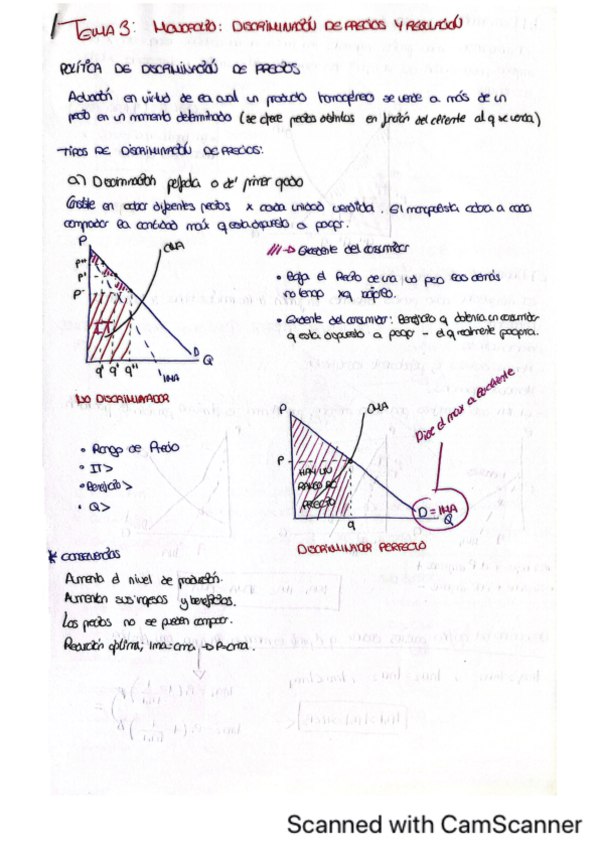 TEMA 3: MONOPOLIO: DISCRIMINACIÓN DE PRECIOS Y REGULACIÓN
POLÍTICA DE DISCRIMINACIÓN DE PRECIOS
Actuación en virtud de la cual un producto homogéneo se vende a más de un
precio en un momento determinado (se ofrece precios distintos en función del cliente al q se venda)
TIPOS DE DISCRIMINACIÓN DE PRECIOS:
a) Discriminación perfecta o de 1er grado
Consiste en cobrar diferentes precios x cada unidad vendida. El monopolista cobra a cada
comprador la cantidad máx q está dispuesto a pagar.
P
CMA
P''
P'
P
IT
D
Q
q' q' q''
IMA
NO DISCRIMINADOR
/// → Excedente del consumidor
• Baja el precio de una, us pero las demás
no tengo xq bajarlo
• Excedente del consumidor: Beneficio q obtenía un consumidor
q está dispuesto a pagar – el q realmente pagaría.
• Rango de Precio
• IT>
• Beneficio>
• Q>
P
CMA
P
HAY UN
RANGO DE
PRECIO
D = IMA
Q
q
Dice el max a cada cliente
DISCRIMINADOR PERFECTO
* CONSECUENCIAS
Aumenta el nivel de producción.
Aumentan sus ingresos y beneficios.
Los precios no se pueden comparar.
Producción óptima; Ima=cma → P=cma.
Scanned with CamScanner